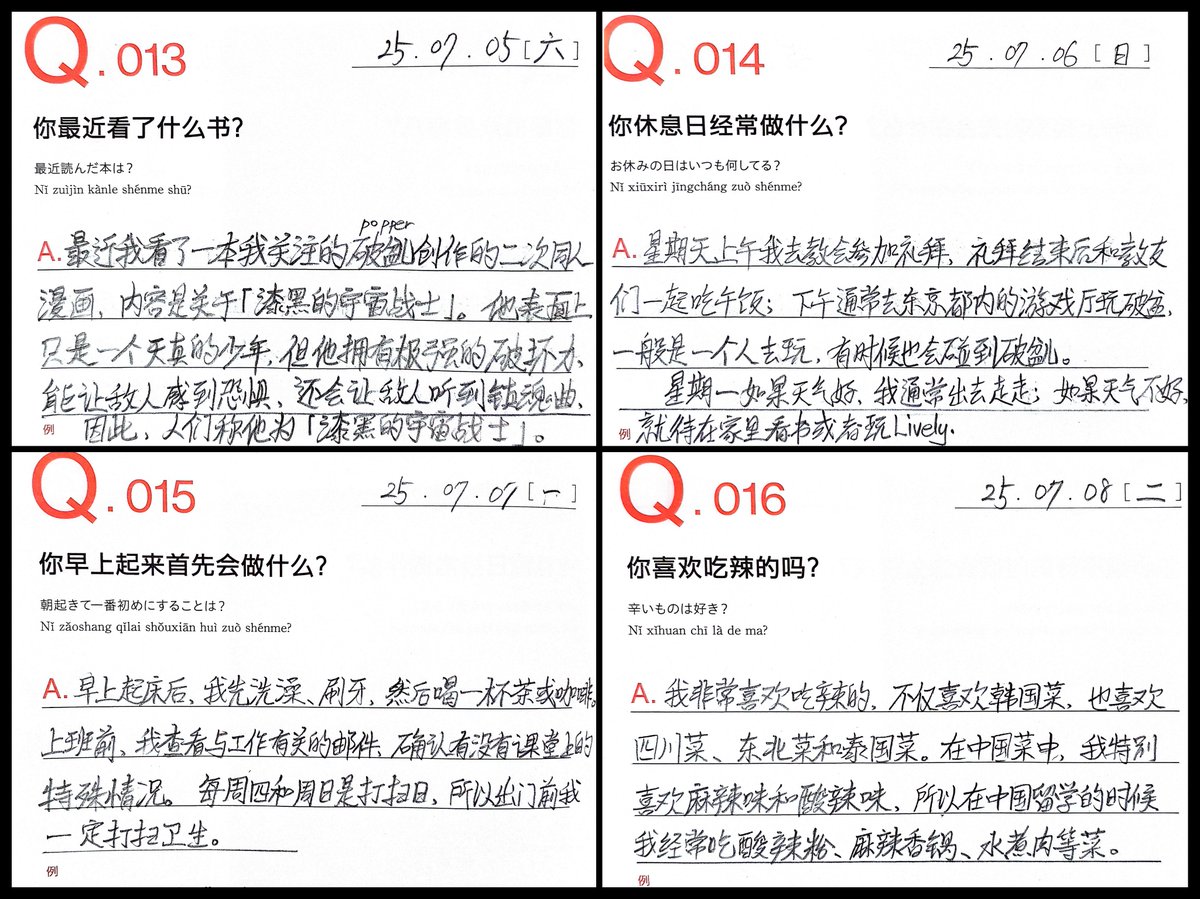 Q.013
25.07.05[六]
你最近看了什么书?
最近読んだ本は?
Nǐ zuìjìn kànle shénme shū?
popper
A.最近我看了一本我关注的破盆创作的二次同人
漫画，内容是关于「漆黑的宇宙战士」。他表面上
只是一个天真的少年，但他拥有极强的破坏力，
能让敌人感到恐惧，还会让敌人听到镇魂曲，
因此，人们称他为「漆黑的宇宙战士」。
例
Q.014
25.07.06[日]
你休息日经常做什么?
お休みの日はいつも何してる?
Nǐ xiūxirì jīngcháng zuò shénme?
A.星期天上午我去教会参加礼拜，礼拜结束后和教友
们一起吃午饭；下午通常去东京都内的游戏厅玩破盆，
一般是一个人去玩，有时候也会碰到破。
星期一如果天气好，我通常出去走走；如果天气不好，
就待在家里看书或者玩Lively.
例
Q.015
25.07.07[一]
你早上起来首先会做什么?
朝起きて一番初めにすることは?
Nǐ zǎoshang qǐlai shǒuxiān huì zuò shénme?
A.早上起床后，我先洗澡、刷牙，然后喝一杯茶或咖啡。
上班前，我查看与工作有关的邮件，确认有没有课堂上的
特殊情况。每周四和周日是打扫日，所以出门前我
一定打扫卫生。
例
Q.016
25.07.08[二]
你喜欢吃辣的吗?
辛いものは好き?
Nǐ xǐhuan chī là de ma?
A.我非常喜欢吃辣的，不仅喜欢韩国菜，也喜欢
四川菜、东北菜和泰国菜。在中国菜中，我特别
喜欢麻辣味和酸辣味，所以在中国留学的时候
我经常吃酸辣粉、麻辣香锅、水煮肉等菜。
例